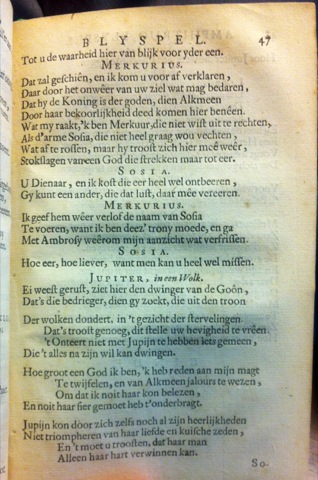 BLYSPEL. 47
Tot u de waarheid hier van blijk voor yder een.
MERKURIUS.
Dat zal geschiên, en ik kom u voor af verklaren,
Daar door het onwêer van uw ziel wat mag bedaren,
Dat hy de Koning is der goden, dien Alkmeen
Door haar bekoorlijkheid deed komen hier benêen.
Wat my raakt, 'k ben Merkuur, die niet wist uit te rechten,
Als d'arme Sosia, die niet heel graag wou vechten,
Wat af te rossen, maar hy troost zich hier meê weêr,
Stokslagen van een God die strekken maar tot eer.
SOSIA.
U Dienaar, en ik kost die eer heel wel ontbeeren,
Gy kunt een ander, die dat lust, daar mêe vereeren.
MERKURIUS.
Ik geef hem wêer verlof de naam van Sosia
Te voeren, want ik ben deez' trony moede, en ga
Met Ambrosy weêrom mijn aanzicht wat verfrissen.
SOSIA.
Hoe eer, hoe liever, want men kan u heel wel missen.
JUPITER, in een Wolk.
Ei weest gerust, ziet hier den dwinger van de Goôn,
Dat's die bedrieger, dien gy zoekt, die uit den troon
Der wolken dondert, in 't gezicht der stervelingen.
Dat's troost genoeg, dit stelle uw hevigheid te vréen.
't Onteert niet met Jupijn te hebben iets gemeen,
Die 't alles na zijn wil kan dwingen.
Hoe groot een God ik ben, 'k heb reden aan mijn magt
Te twijfelen, en van Alkmeen jalours te wezen,
Om dat ik naar haar kon belezen,
En noit haar fier gemoet heb t'onderbragt.
Jupijn kon door zich zelfs noch al zijn heerlijkheden
Niet triompheren van haar liefde en kuische zeden,
En 't moet u troosten, dat haar man
Alleen haar hart verwinnen kan.
So-